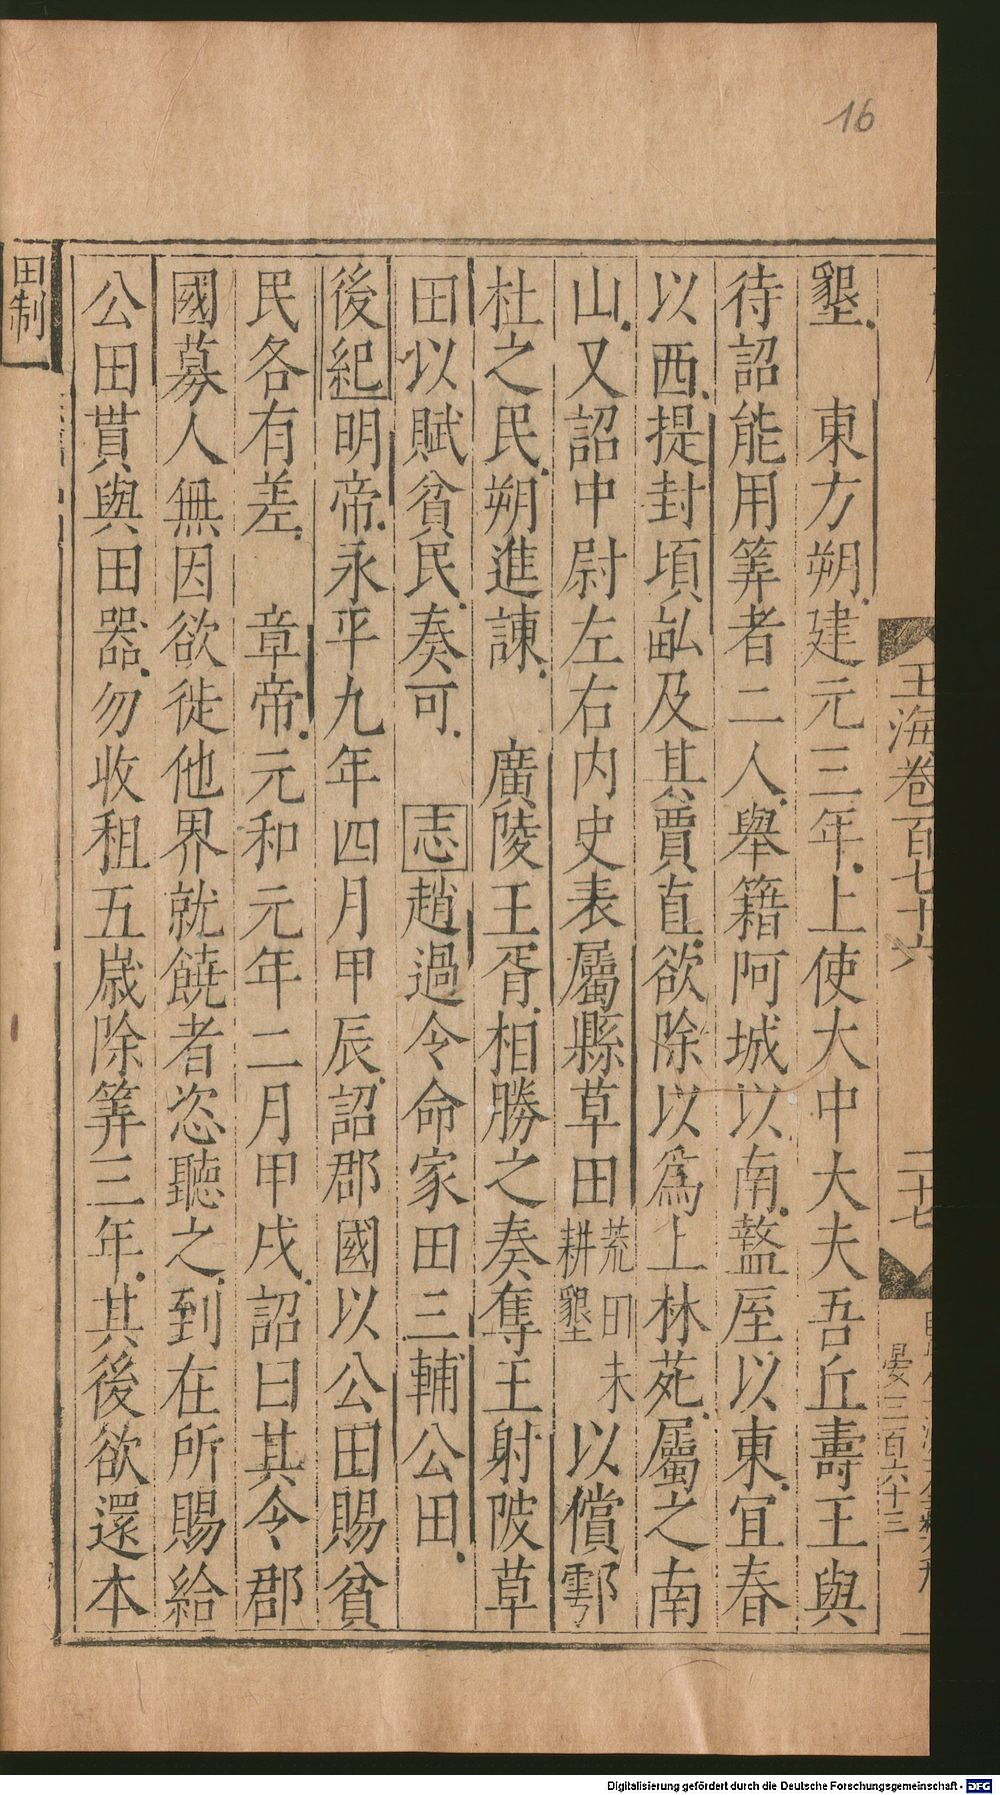 16
玉海卷百七十六
二十七
晏三百六十三
墾 東方朔建元三年上使大中大夫吾丘壽王與
待詔能用筭者二人舉籍阿城以南盩厔以東宜春
以西提封頃畝及其賈直欲除以為上林苑屬之南
山又詔中尉左右内史表屬縣草田荒田未耕墾以償鄠
杜之民朔進諫 廣陵王胥相勝之奏奪王射陂草
田以賦貧民奏可 志趙過令命家田三輔公田
後紀明帝永平九年四月甲辰詔郡國以公田賜貧
民各有差 章帝元和元年二月甲戌詔曰其令郡
國募人無田欲徙他界就饒者恣聽之到在所賜給
公田貰與田器勿收租五歲除筭三年其後欲還本
田制
Digitalisierung gefördert durch die Deutsche Forschungsgemeinschaft - DFG